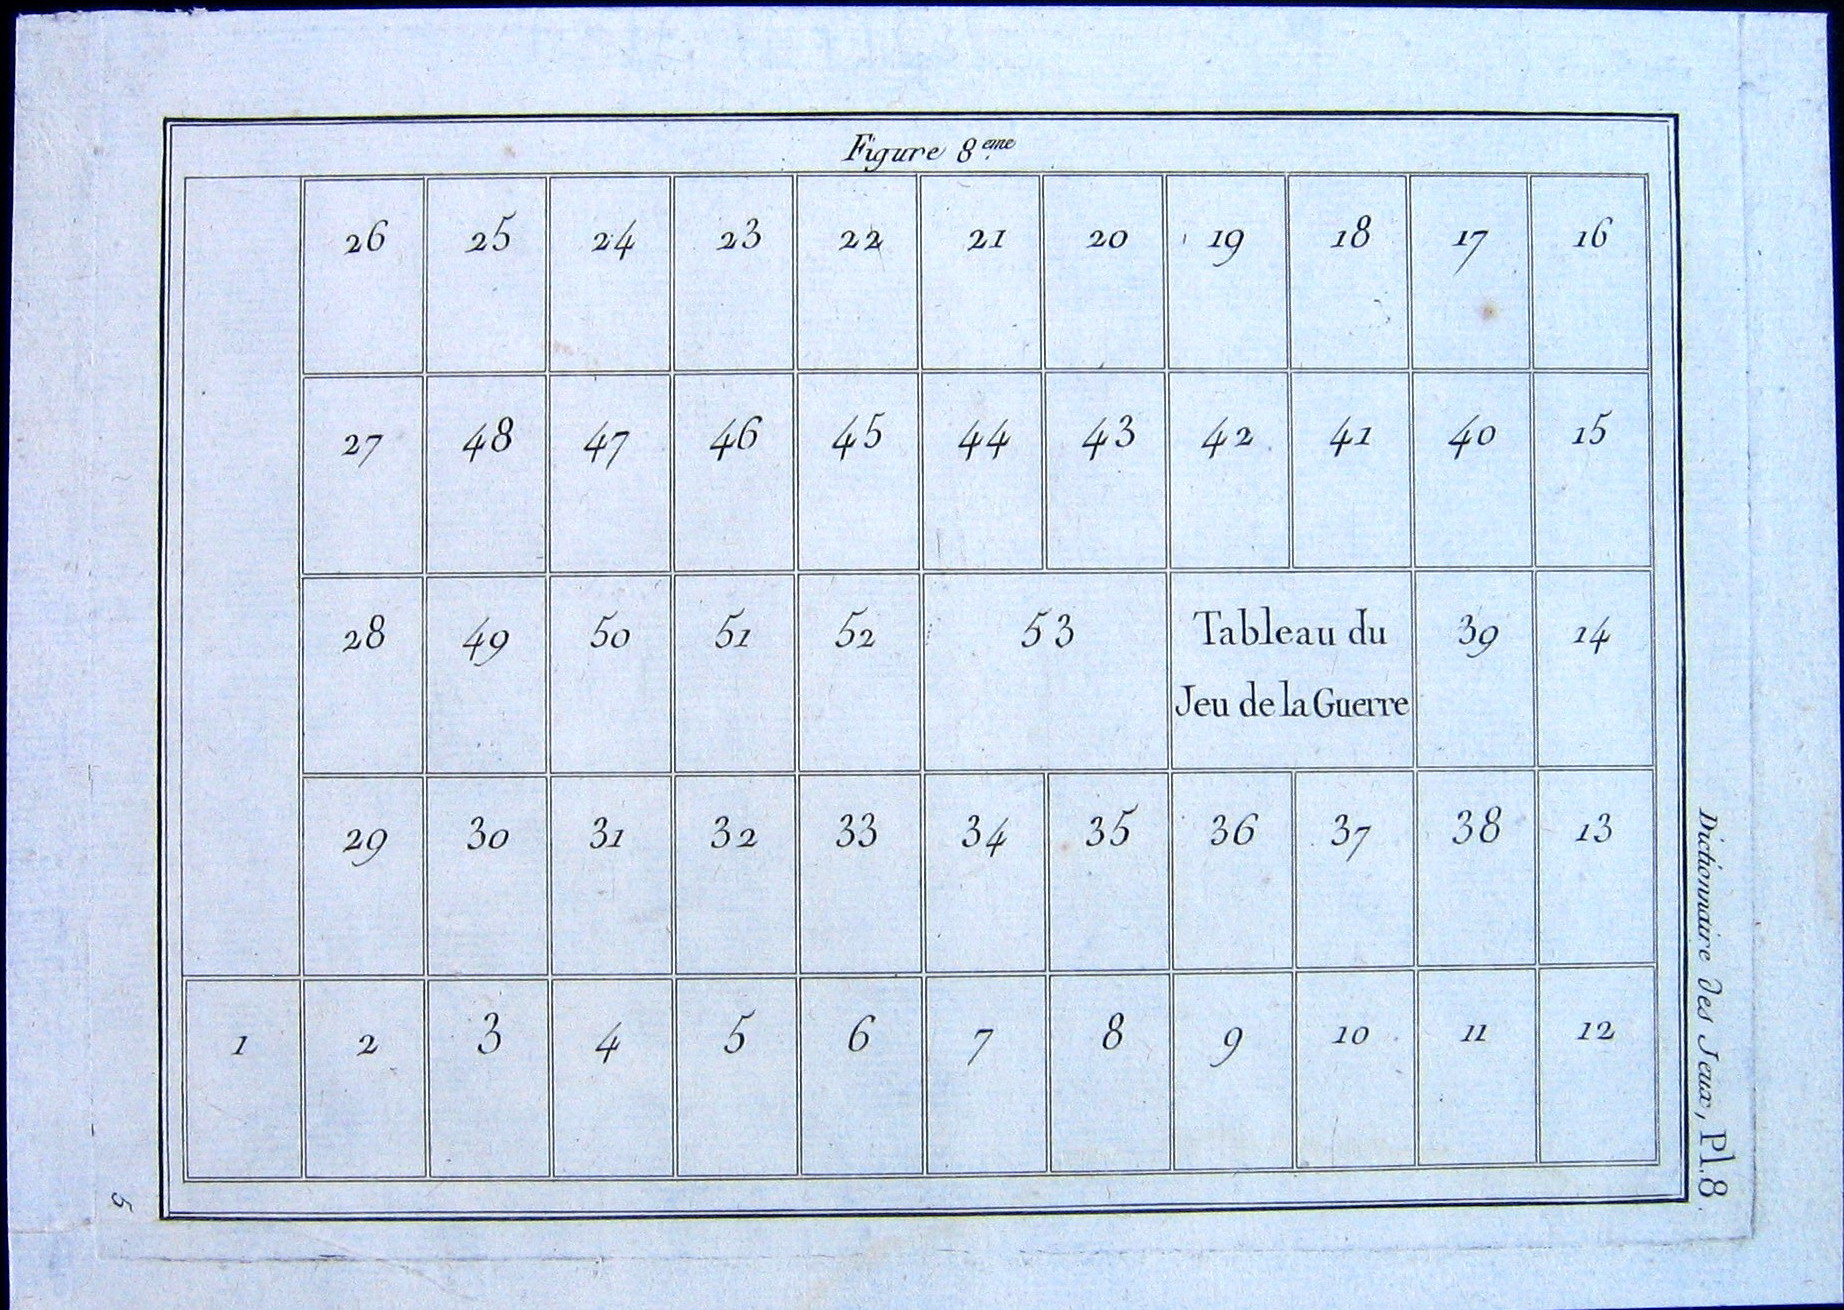 Figure 8.eme
26 25 24 23 22 21 20 19 18 17 16
27 48 47 46 45 44 43 42 41 40 15
28 49 50 51 52 53 Tableau du 39 14
Jeu de la Guerre
29 30 31 32 33 34 35 36 37 38 13
1 2 3 4 5 6 7 8 9 10 11 12
Dictionnaire des Jeux, Pl. 8.
5